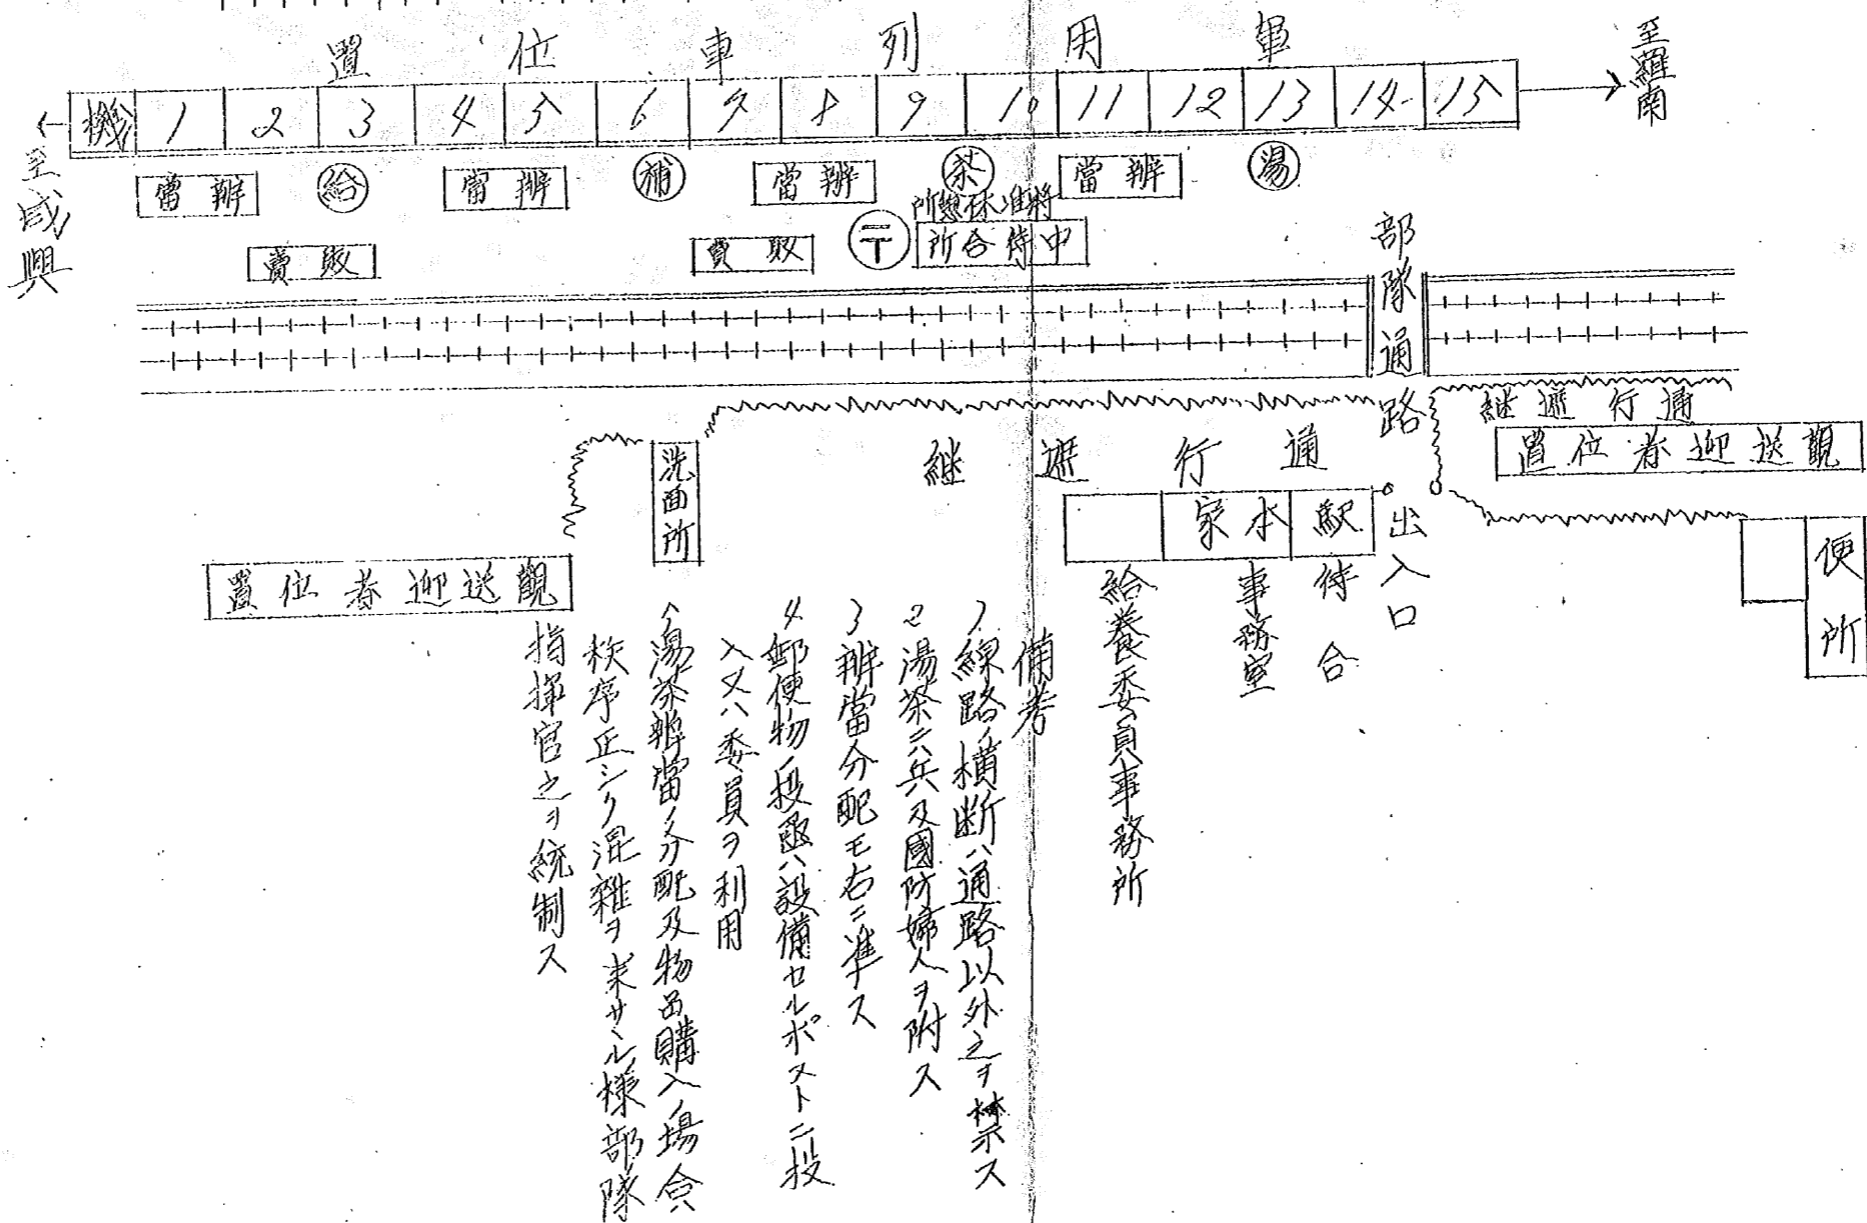 置位車列用軍
至羅南
機 1 2 3 4 5 6 7 8 9 10 11 12 13 14 15
至咸興
當辨
給
當辨
補
當辨
茶
當辨
湯
所憩休准將
所合待中
〒
賣販
賣販
部隊通路
継遮行通
置位者迎送観
継遮行通
洗面所
家本
駅
出入口
便所
置位者迎送観
待合
事務室
給養委員事務所
備考
1 線路ノ横断ハ通路以外之ヲ禁ス
2 湯茶ニハ兵及國防婦人ヲ附ス
3 辨當分配モ右ニ準ス
4 郵便物ノ投函ハ設備セルポストニ投
入又ハ委員ヲ利用
5 湯茶辨當ノ分配及物品購入ノ場合
秩序正シク混雑ヲ来サル様部隊
指揮官之ヲ統制ス